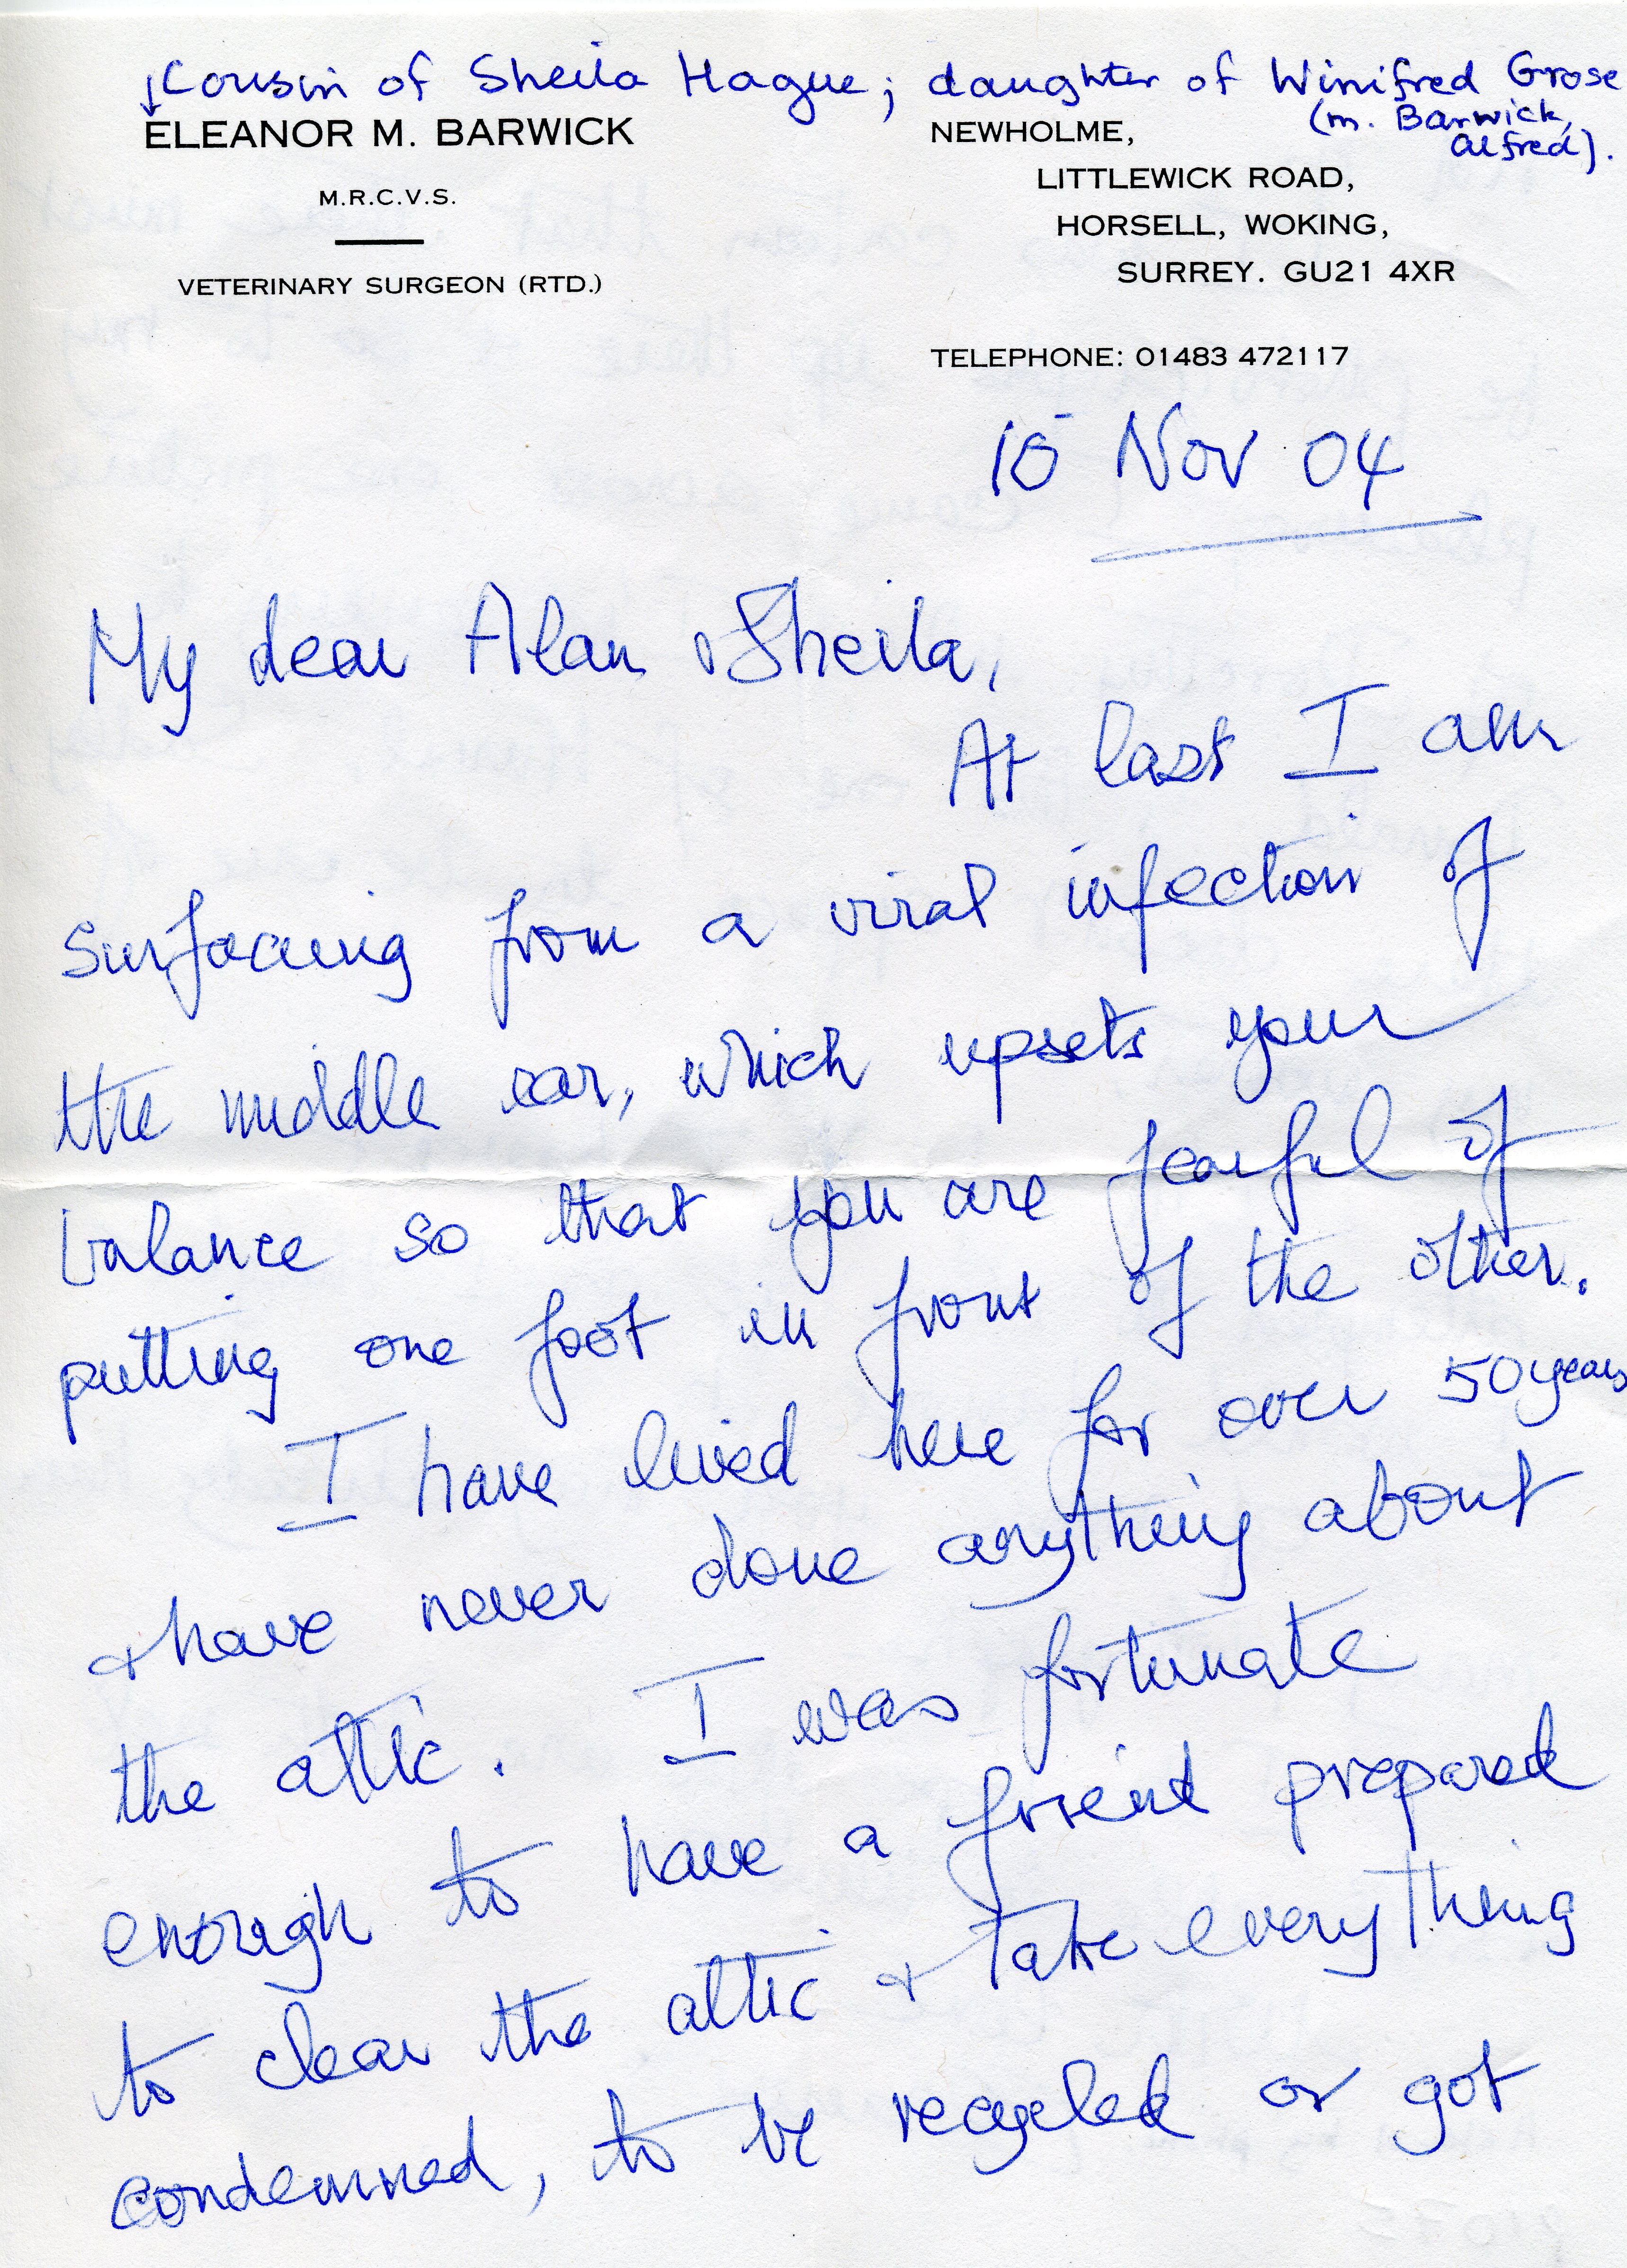 ↓Cousin of Sheila Hague; daughter of Winifred Grose
(m. Barwick,
Alfred).
ELEANOR M. BARWICK
M.R.C.V.S.
VETERINARY SURGEON (RTD.)
NEWHOLME,
LITTLEWICK ROAD,
HORSELL, WOKING,
SURREY. GU21 4XR
TELEPHONE: 01483 472117
Nov 04
My dear Alan & Sheila,
At last I am
surfacing from a viral infection of
the middle ear, which upsets your
balance so that you are fearful of
putting one foot in front of the other.
I have lived here for over 50 years
& have never done anything about
the attic. I was fortunate
enough to have a friend prepared
to clear the attic & take everything
condemned, to be recycled or got